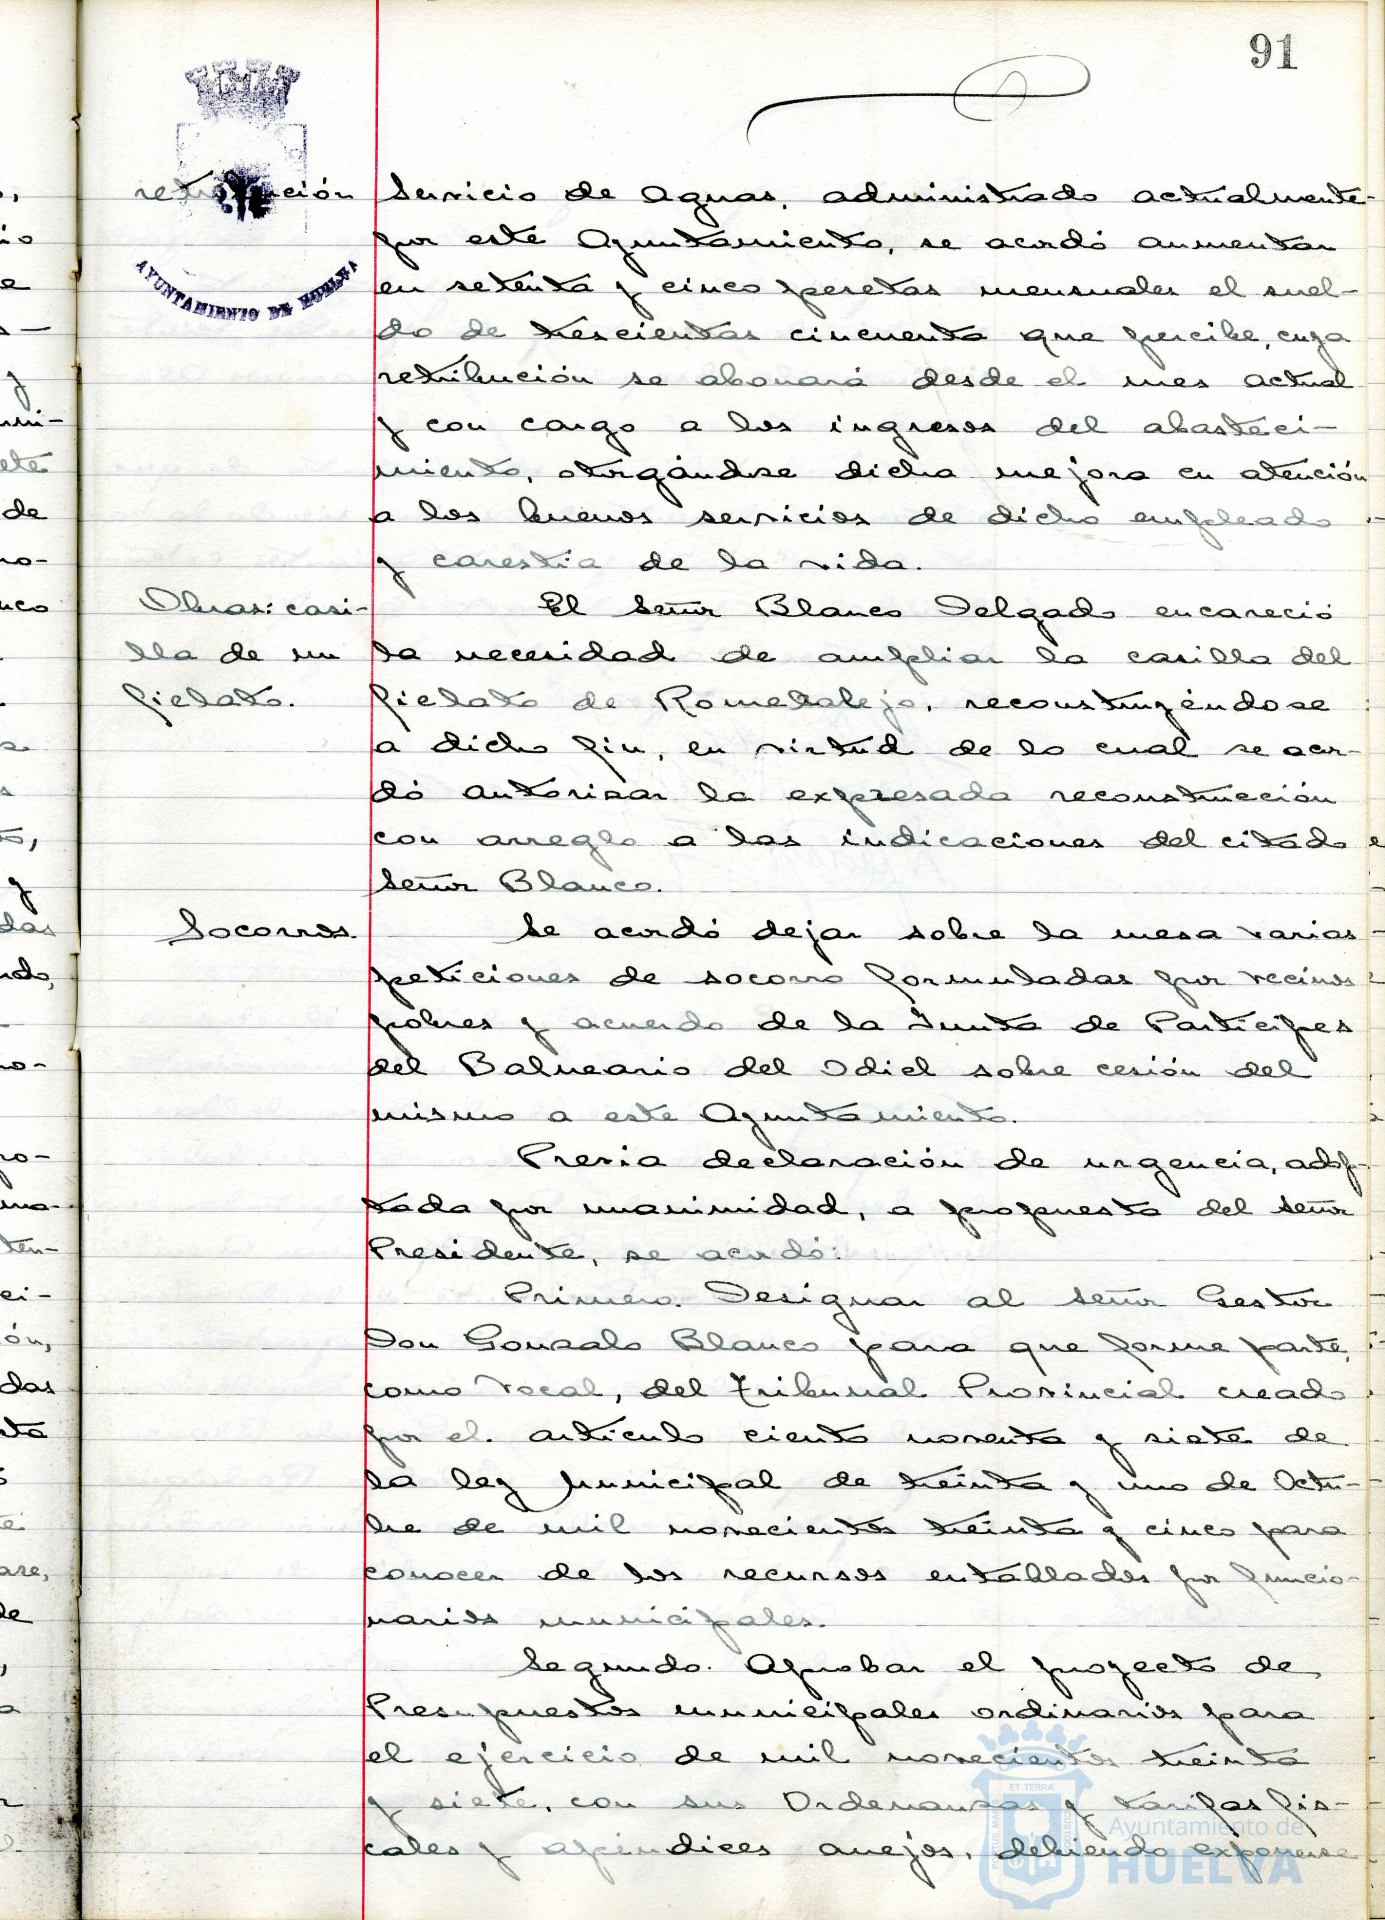 91
retribución
AYUNTAMIENTO DE HUELVA
Servicio de Aguas, administrado actualmente
por este Ayuntamiento, se acordó aumentar
en setenta y cinco pesetas mensuales el suel-
do de trescientas cincuenta que percibe, cuya
retribución se abonará desde el mes actual
y con cargo a los ingresos del abasteci-
miento, otorgándose dicha mejora en atención
a los buenos servicios de dicho empleado
y carestía de la vida.
Obras: casi-
lla de un
fielato.
El Señor Blanco Delgado encareció
la necesidad de ampliar la casilla del
fielato de Romeralejo, reconstruyéndose
a dicho fin, en virtud de lo cual se acor-
dó autorizar la expresada reconstrucción
con arreglo a las indicaciones del citado
Señor Blanco.
Socorros.
Se acordó dejar sobre la mesa varias
peticiones de socorro formuladas por vecinos
pobres y acuerdo de la Junta de Partícipes
del Balneario del Odiel sobre cesión del
mismo a este Ayuntamiento.
Previa declaración de urgencia, adop-
tada por unanimidad, a propuesta del Señor
Presidente, se acordó:
Primero. Designar al Señor Gestor
Don Gonzalo Blanco para que forme parte,
como Vocal, del Tribunal Provincial creado
por el artículo ciento noventa y siete de
la ley Municipal de treinta y uno de Octu-
bre de mil novecientos treinta y cinco para
conocer de los recursos entablados por funcio-
narios municipales.
Segundo. Aprobar el proyecto de
Presupuestos municipales ordinarios para
el ejercicio de mil novecientos treinta
y siete, con sus Ordenanzas y tarifas fis-
cales y apéndices anejos, debiendo exponerse
Ayuntamiento de
HUELVA